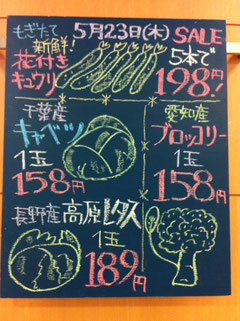 もぎたて 5月23日(木) SALE
新鮮!
花付き
キュウリ
5本で
198円!
千葉産
キャベツ
1玉
158円
愛知産
ブロッコリー
1玉
158円
長野産 高原レタス
1玉
189円